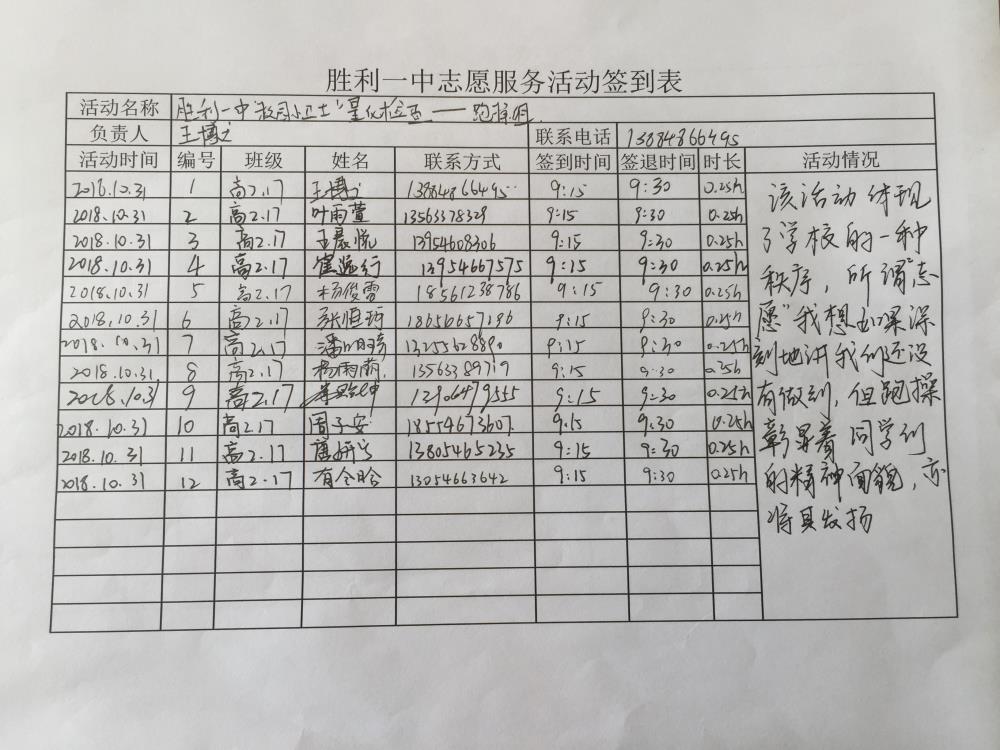 胜利一中志愿服务活动签到表
活动名称 胜利一中"校园小卫士"量化检查——跑操组
负责人 王博 联系电话 13884866495
活动时间 编号 班级 姓名 联系方式 签到时间 签退时间 时长 活动情况
2018.10.31 1 高2.17 王博 13884866495 9:15 9:30 0.25h
2018.10.31 2 高2.17 叶雨萱 13563378329 9:15 9:30 0.25h
2018.10.31 3 高2.17 王晨悦 13954608306 9:15 9:30 0.25h
2018.10.31 4 高2.17 13954667575 9:15 9:30 0.25h
2018.10.31 5 高2.17 杨俊雷 18561238786 9:15 9:30 0.25h
2018.10.31 6 高2.17 张恒 18656657196 9:15 9:30 0.25h
2018.10.31 7 高2.17 13255628890 9:15 9:30 0.25h
2018.10.31 8 高2.17 杨雨萌 13563389719 9:15 9:30 0.25h
2018.10.31 9 高2.17 9:15 9:30 0.25h
2018.10.31 10 高2.17 周子安 18554673607 9:15 9:30 0.25h
2018.10.31 11 高2.17 13805465235 9:15 9:30 0.25h
2018.10.31 12 高2.17 13054663642 9:15 9:30 0.25h
该活动体现
了学校的一种
秩序，所谓"志
愿"我想如果深
刻地讲我们还没
有做到，但跑操
彰显着同学们
的精神面貌，亦
将其发扬